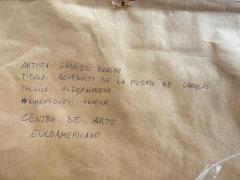 ARTISTA: GABRIEL BRACHO
TITULO: ACUEDUCTO DE LA PUERTA DE CARACAS
TECNICA: OLEO/MADERA
DIMENSIONES:
CENTRO DE ARTE
EUROAMERICANO